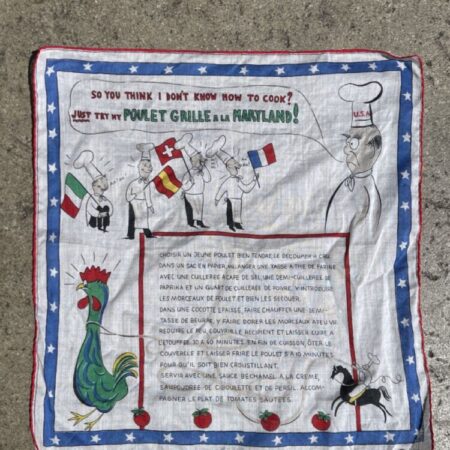 SO YOU THINK I DON'T KNOW HOW TO COOK?
JUST TRY MY POULET GRILLE A LA MARYLAND!
U.S.A
CHOISIR UN JEUNE POULET BIEN TENDRE, LE DECOUPER A CRU.
DANS UN SAC EN PAPIER, MELANGER UNE TASSE A THE DE FARINE
AVEC UNE CUILLEREE A CAFE DE SEL, UNE DEMI-CUILLEREE DE
PAPRIKA ET UN QUART DE CUILLEREE DE POIVRE. Y INTRODUIRE
LES MORCEAUX DE POULET ET BIEN LES SECOUER.
DANS UNE COCOTTE EPAISSE, FAIRE CHAUFFER UNE DEMI-
TASSE DE BEURRE. Y FAIRE DORER LES MORCEAUX A FEU VIF.
REDUIRE LE FEU, COUVRIR LE RECIPIENT ET LAISSER CUIRE A
L'ETOUFFEE 30 A 40 MINUTES. EN FIN DE CUISSON, OTER LE
COUVERCLE ET LAISSER FRIRE LE POULET 5 A 10 MINUTES
POUR QU'IL SOIT BIEN CROUSTILLANT.
SERVIR AVEC UNE SAUCE BECHAMEL A LA CREME,
SAUPOUDREE DE CIBOULETTE ET DE PERSIL. ACCOM-
PAGNER LE PLAT DE TOMATES SAUTEES.